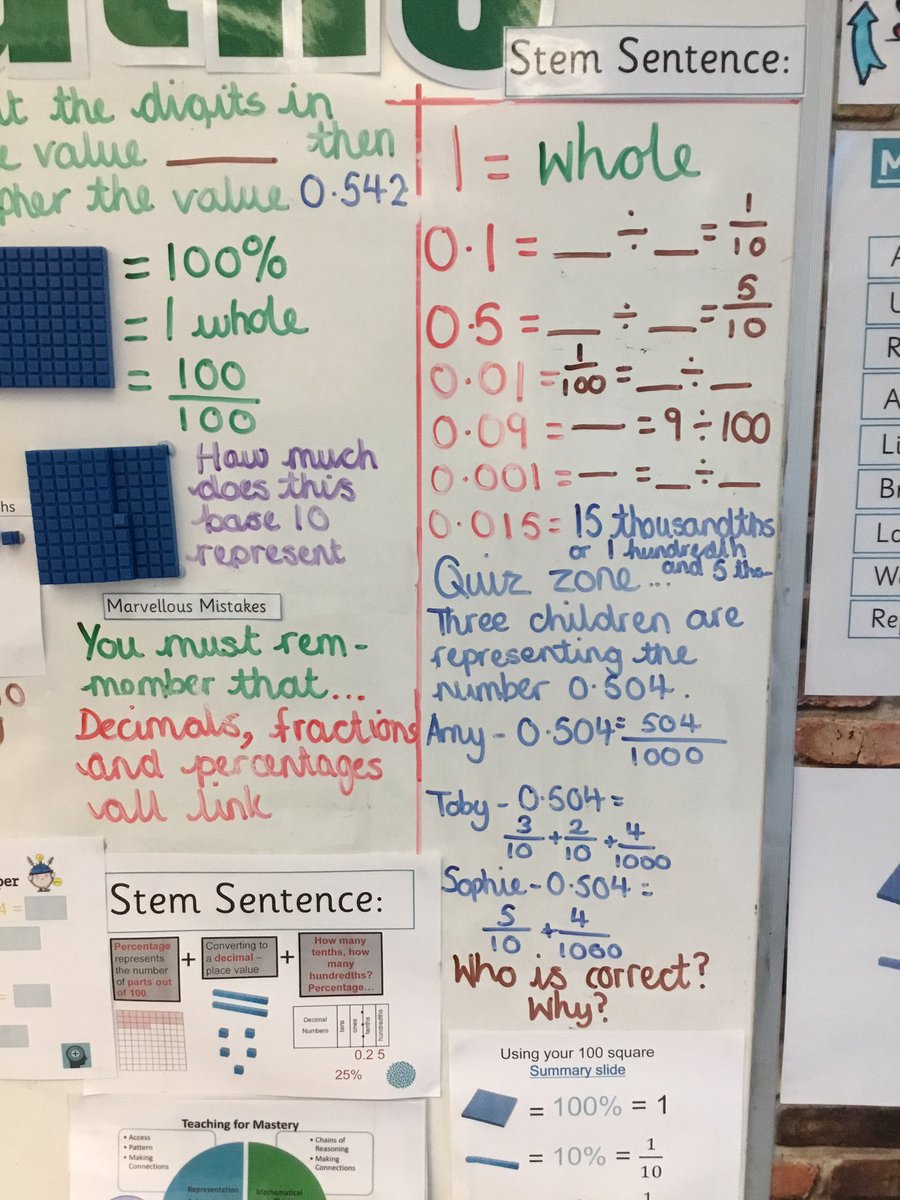 Stem Sentence:
the digits in
value ____ then
the value 0.542
= 100%
= 1 whole
= 100/100
How much
does this
base 10
represent
Marvellous Mistakes
You must rem-
momber that...
Decimals, fractions
and percentages
all link
1 = whole
0.1 = __ ÷ __ = 1/10
0.5 = __ ÷ __ = 5/10
0.01 = 1/100 = __ ÷ __
0.09 = __ = 9 ÷ 100
0.001 = __ = __ ÷ __
0.015 = 15 thousandths
or 1 hundredth
and 5 tho-
Quiz zone...
Three children are
representing the
number 0.504.
Amy - 0.504 = 504/1000
Toby - 0.504 =
3/10 + 2/10 + 4/1000
Sophie - 0.504 =
5/10 + 4/1000
Who is correct?
Why?
Stem Sentence:
Percentage
represents
the number
of parts out
of 100.
+
Converting to
a decimal –
place value
+
How many
tenths, how
many
hundredths?
Percentage...
Decimal
Numbers
tens
ones
tenths
hundredths
0.2 5
25%
Using your 100 square
Summary slide
= 100% = 1
= 10% = 1/10
Teaching for Mastery
• Access
• Pattern
• Making
Connections
• Chains of
Reasoning
• Making
Connections
Representation
Mathematical